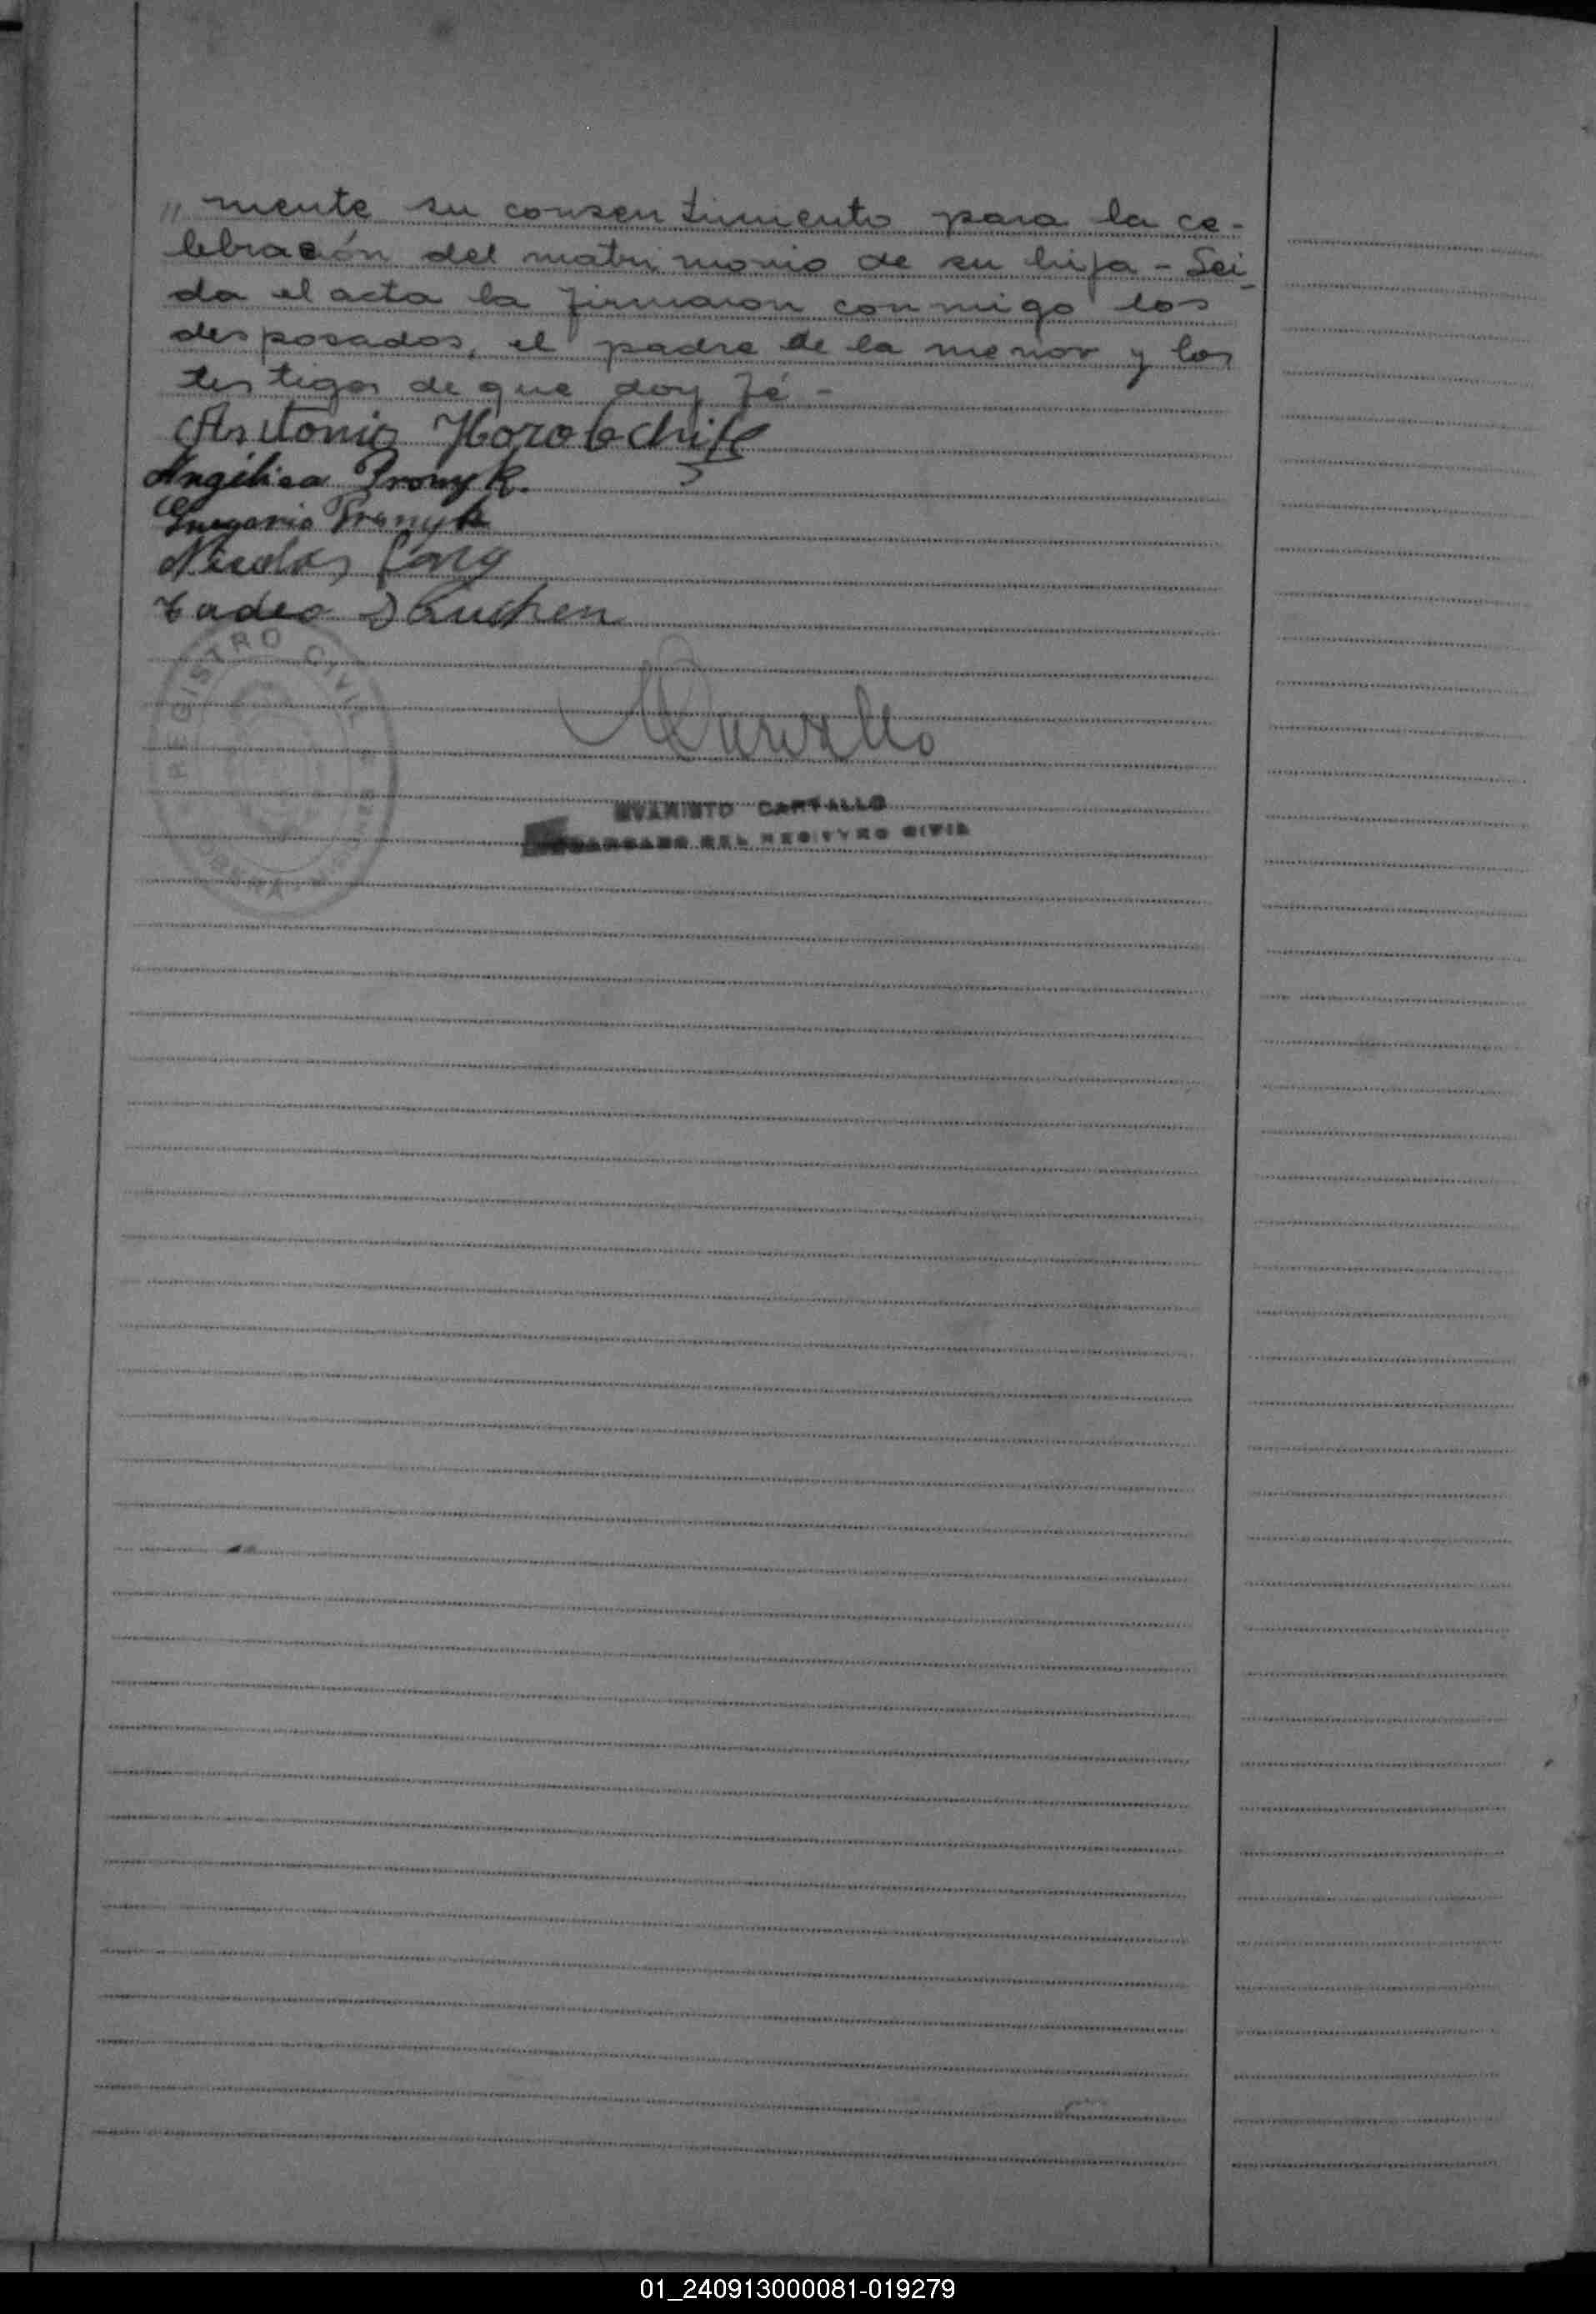 " mente su consentimiento para la ce-
lebración del matrimonio de su hija - Lei
da el acta la firmaron conmigo los
desposados, el padre de la menor y los
testigos de que doy fé -
Antonio
Angélica Pronyk.
Gregorio Pronyk
Nicolas
Tadeo
REGISTRO CIVIL
CARVALLO
DEL REGISTRO CIVIL
01_240913000081-019279